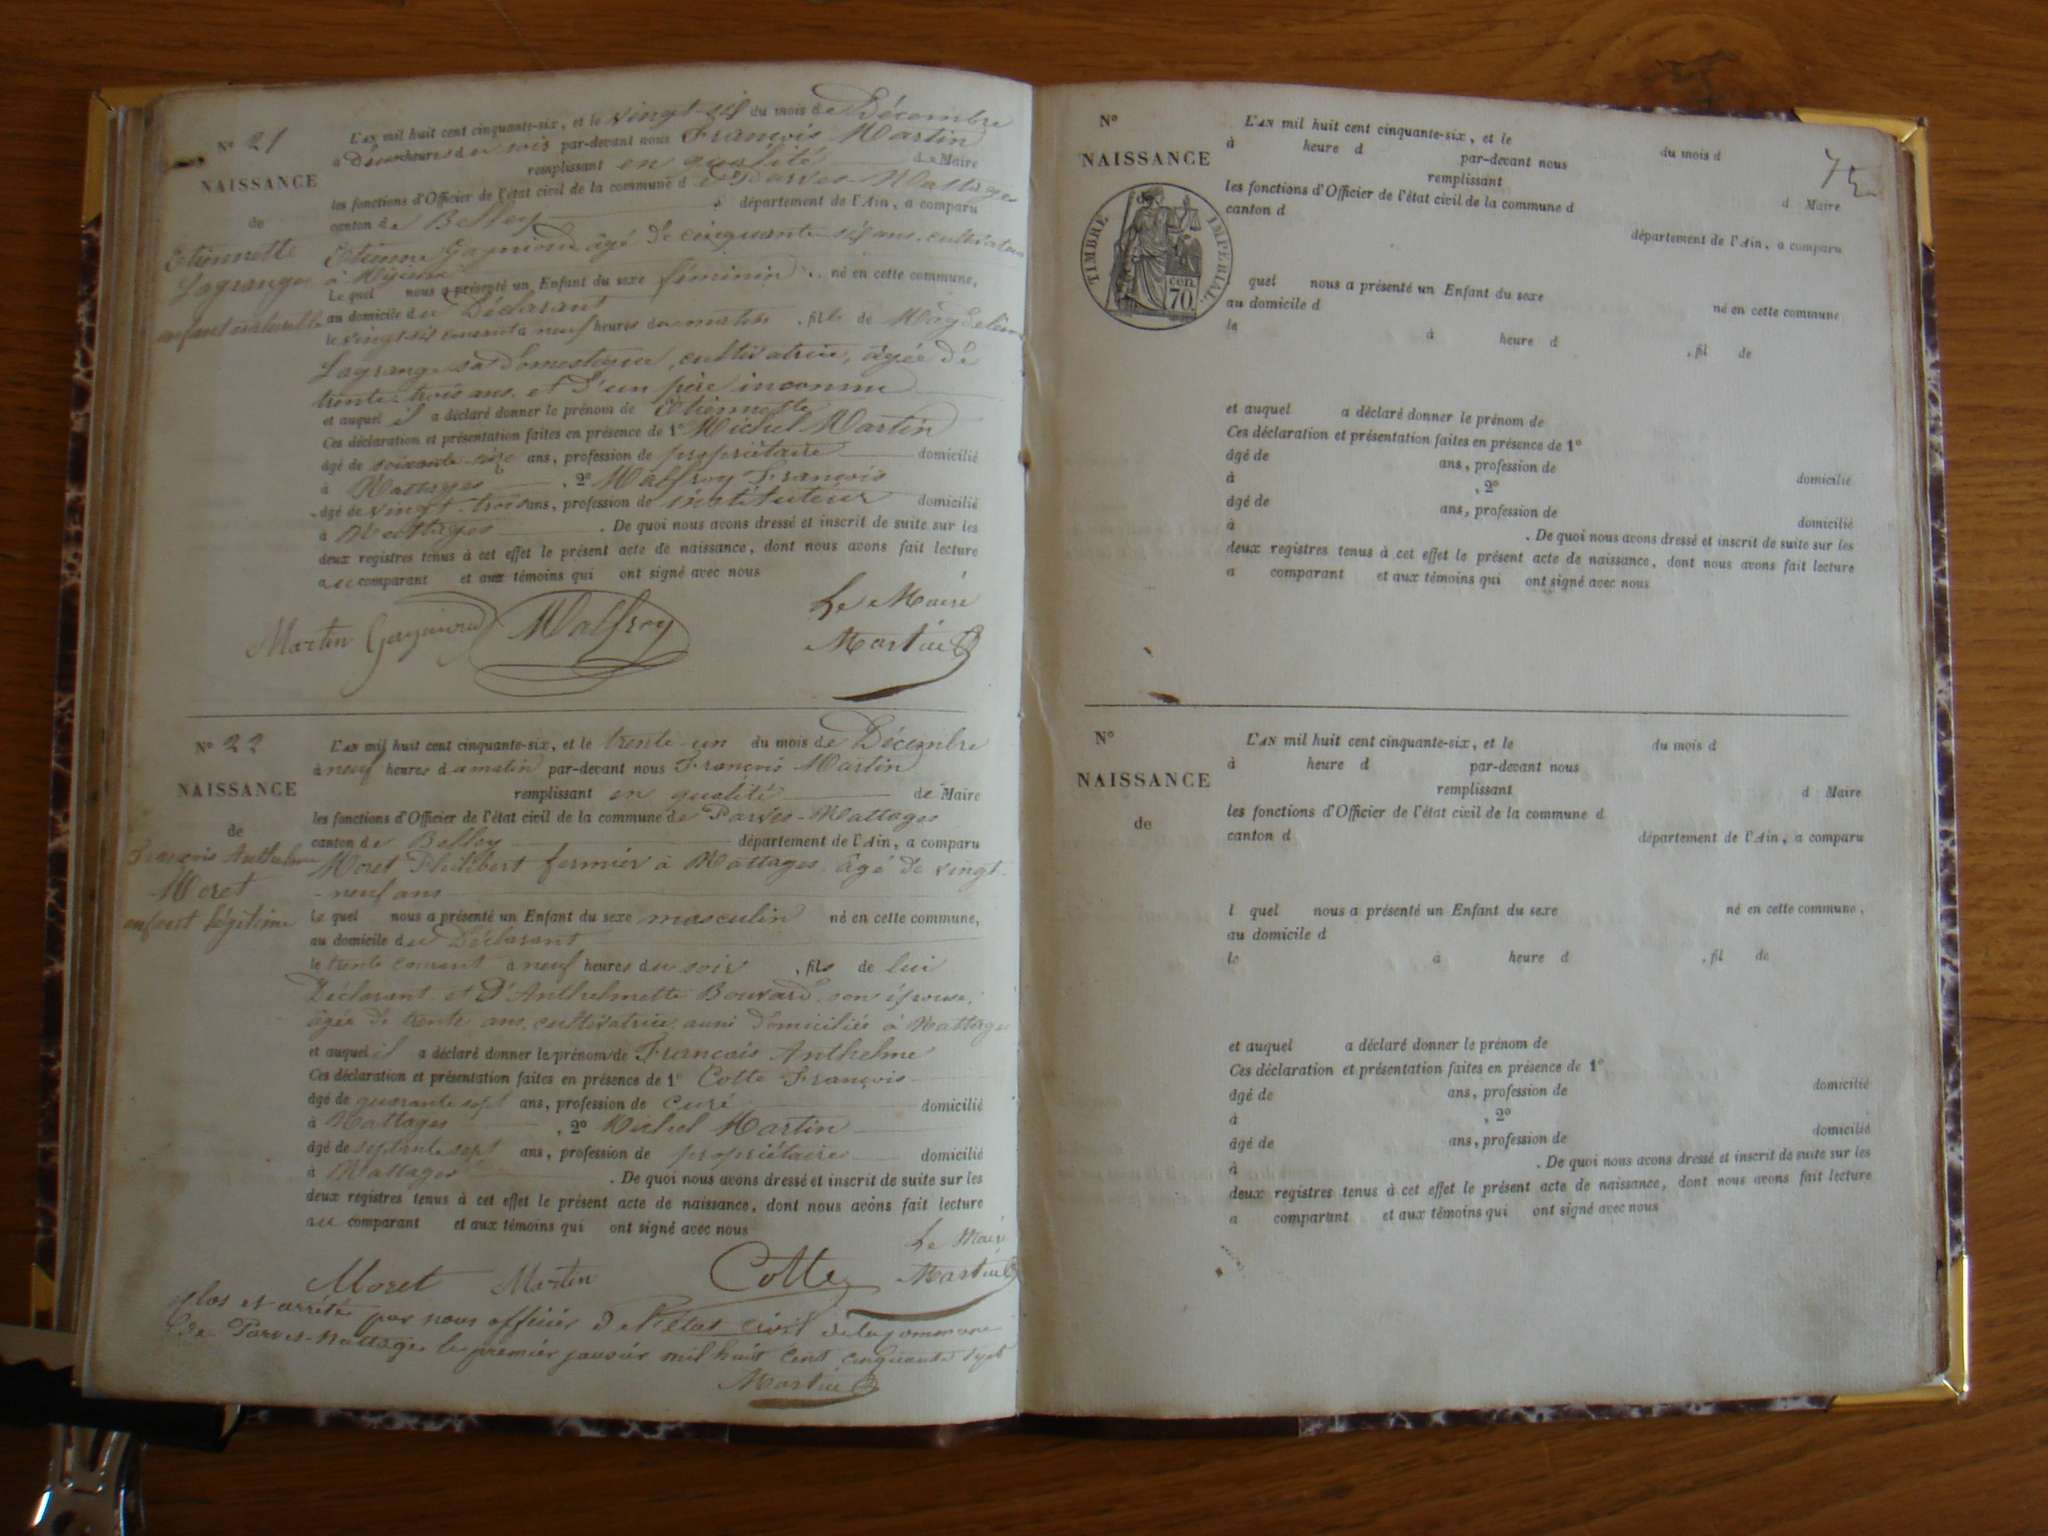 N° 21
NAISSANCE
de
Etiennette
Lagrange
enfant naturelle
L'AN mil huit cent cinquante-six, et le vingt-six du mois de Décembre
à deux heures du soir par-devant nous François Martin
remplissant en qualité de Maire
les fonctions d'Officier de l'état civil de la commune de Parves-Nattages
canton de Belley département de l'Ain, a comparu
Etienne âgé de cinquante-six ans, cultivateur
à
Le quel nous a présenté un Enfant du sexe féminin né en cette commune,
au domicile du Déclarant
le vingt-six courant à neuf heures du matin, fille de Magdeleine
Lagrange sa domestique, cultivatrice, âgée de
trente-trois ans, et d'un père inconnu
et auquel il a déclaré donner le prénom de Etiennette
Ces déclaration et présentation faites en présence de 1° Michel Martin
âgé de ans, profession de propriétaire domicilié
à Nattages, 2° Malfroy François
âgé de vingt-trois ans, profession de instituteur domicilié
à Nattages. De quoi nous avons dressé et inscrit de suite sur les
deux registres tenus à cet effet le présent acte de naissance, dont nous avons fait lecture
au comparant et aux témoins qui ont signé avec nous
Le Maire
Martin Malfroy Martin
N° 22
NAISSANCE
de
François Anthelme
Moret
enfant légitime
L'AN mil huit cent cinquante-six, et le trente-un du mois de Décembre
à neuf heures du matin par-devant nous François Martin
remplissant en qualité de Maire
les fonctions d'Officier de l'état civil de la commune de Parves-Nattages
canton de Belley département de l'Ain, a comparu
Moret Philibert fermier à Nattages, âgé de vingt-
-neuf ans
Le quel nous a présenté un Enfant du sexe masculin né en cette commune,
au domicile du Déclarant
le trente courant à neuf heures du soir, fils de lui
Déclarant et d'Anthelmette Bouvard, son épouse,
âgée de trente ans, cultivatrice, aussi domiciliée à Nattages
et auquel il a déclaré donner le prénom de François Anthelme
Ces déclaration et présentation faites en présence de 1° Cotte François
âgé de quarante-sept ans, profession de curé domicilié
à Nattages, 2° Michel Martin
âgé de septante-sept ans, profession de propriétaire domicilié
à Nattages. De quoi nous avons dressé et inscrit de suite sur les
deux registres tenus à cet effet le présent acte de naissance, dont nous avons fait lecture
au comparant et aux témoins qui ont signé avec nous
Le Maire
Moret Martin Cotte Martin
Clos et arrêté par nous officier de l'état civil de la commune
de Parves-Nattages le premier janvier mil huit cent cinquante sept
Martin
N°
NAISSANCE
de
TIMBRE IMPÉRIAL
70 cen.
75
L'AN mil huit cent cinquante-six, et le du mois d
à heure d par-devant nous
remplissant d Maire
les fonctions d'Officier de l'état civil de la commune d
canton d département de l'Ain, a comparu
quel nous a présenté un Enfant du sexe né en cette commune
au domicile d
le à heure d , fil de
et auquel a déclaré donner le prénom de
Ces déclaration et présentation faites en présence de 1°
âgé de ans, profession de domicilié
à , 2°
âgé de ans, profession de domicilié
à . De quoi nous avons dressé et inscrit de suite sur les
deux registres tenus à cet effet le présent acte de naissance, dont nous avons fait lecture
a comparant et aux témoins qui ont signé avec nous
N°
NAISSANCE
de
L'AN mil huit cent cinquante-six, et le du mois d
à heure d par-devant nous
remplissant d Maire
les fonctions d'Officier de l'état civil de la commune d
canton d département de l'Ain, a comparu
l quel nous a présenté un Enfant du sexe né en cette commune,
au domicile d
le à heure d , fil de
et auquel a déclaré donner le prénom de
Ces déclaration et présentation faites en présence de 1°
âgé de ans, profession de domicilié
à , 2°
âgé de ans, profession de domicilié
à . De quoi nous avons dressé et inscrit de suite sur les
deux registres tenus à cet effet le présent acte de naissance, dont nous avons fait lecture
a comparant et aux témoins qui ont signé avec nous